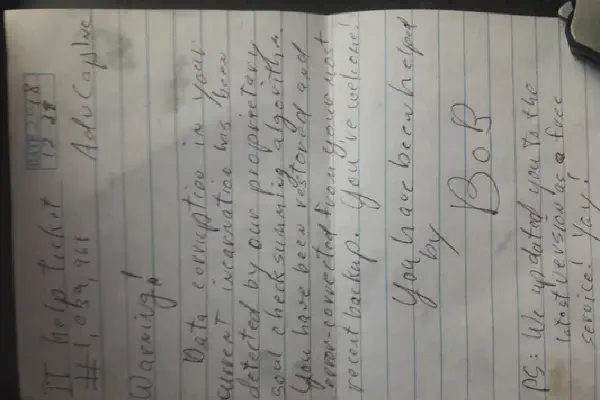 IT help ticket
Warning!
Data corruption in your
current incarnation has been
detected by our proprietary
soul checksumming algorithm.
You have been restored and
error-corrected from your most
recent backup. You're welcome!
You have been helped
by
BoB
PS: We updated you to the
latest version as a free
service! Yay!